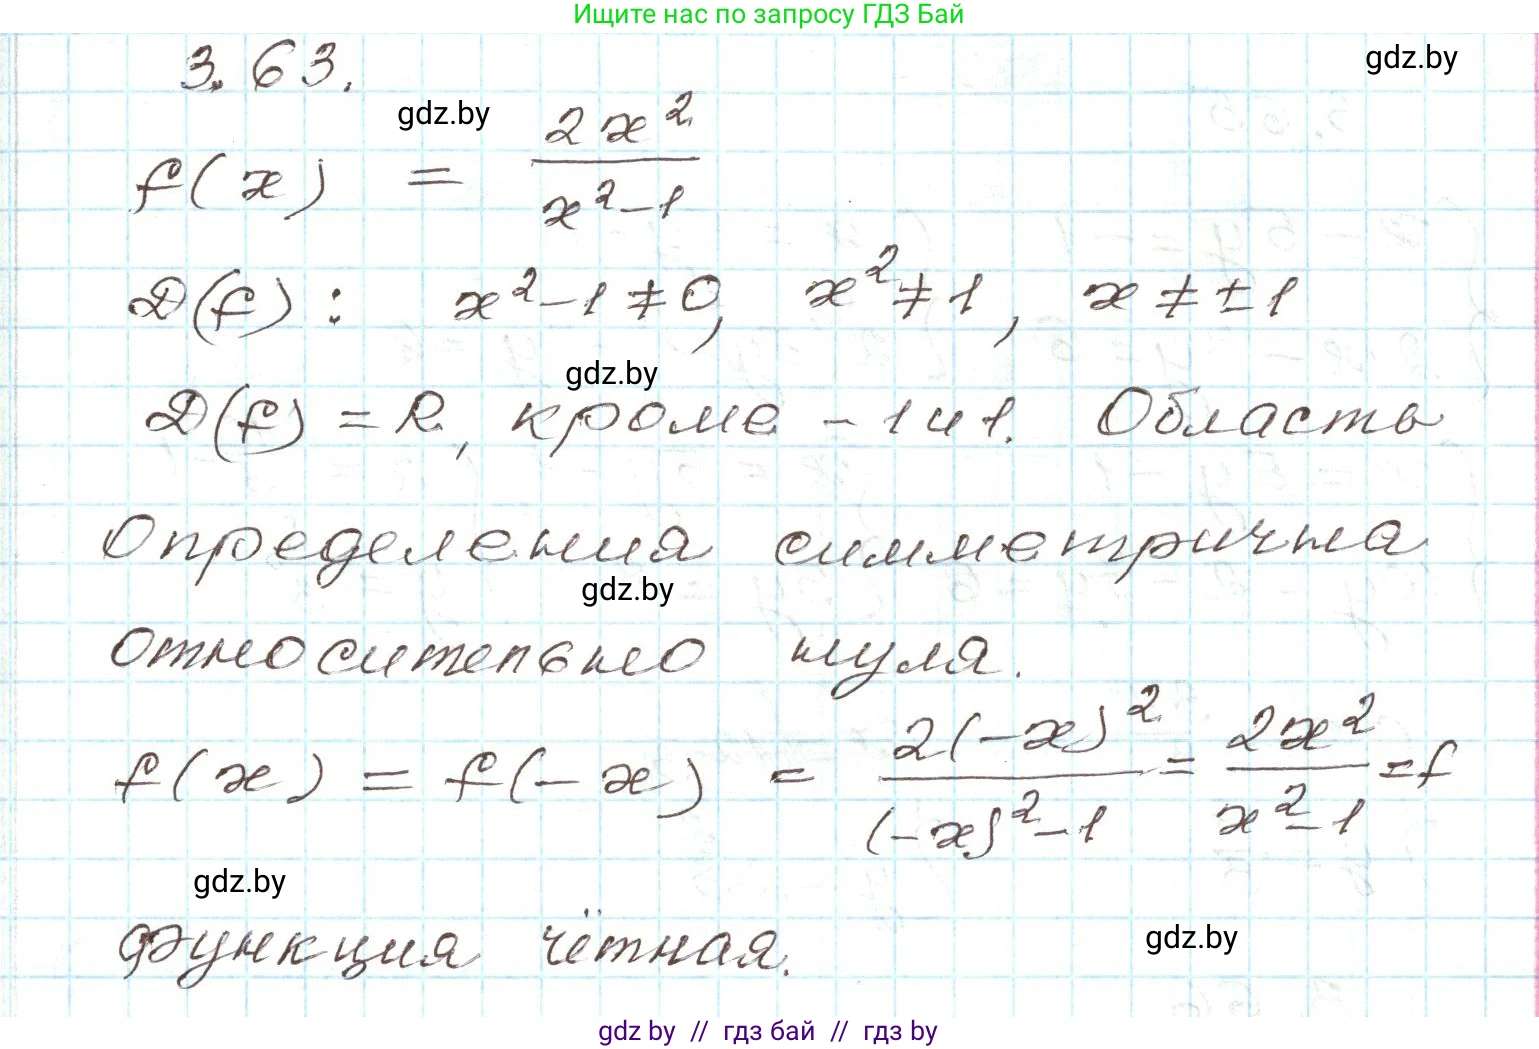 Ищите нас по запросу ГДЗ Бай
3.63.
gdz.by
gdz.by
f(x) = \frac{2x^2}{x^2-1}
D(f): x^2-1≠0, x^2≠1, x≠±1
gdz.by
D(f) = R, кроме -1 и 1. Область
определения симметрична
gdz.by
относительно нуля.
f(x) = f(-x) = \frac{2(-x)^2}{(-x)^2-1} = \frac{2x^2}{x^2-1} = f
gdz.by
Функция чётная.
gdz.by
gdz by // гдз бай // гдз by